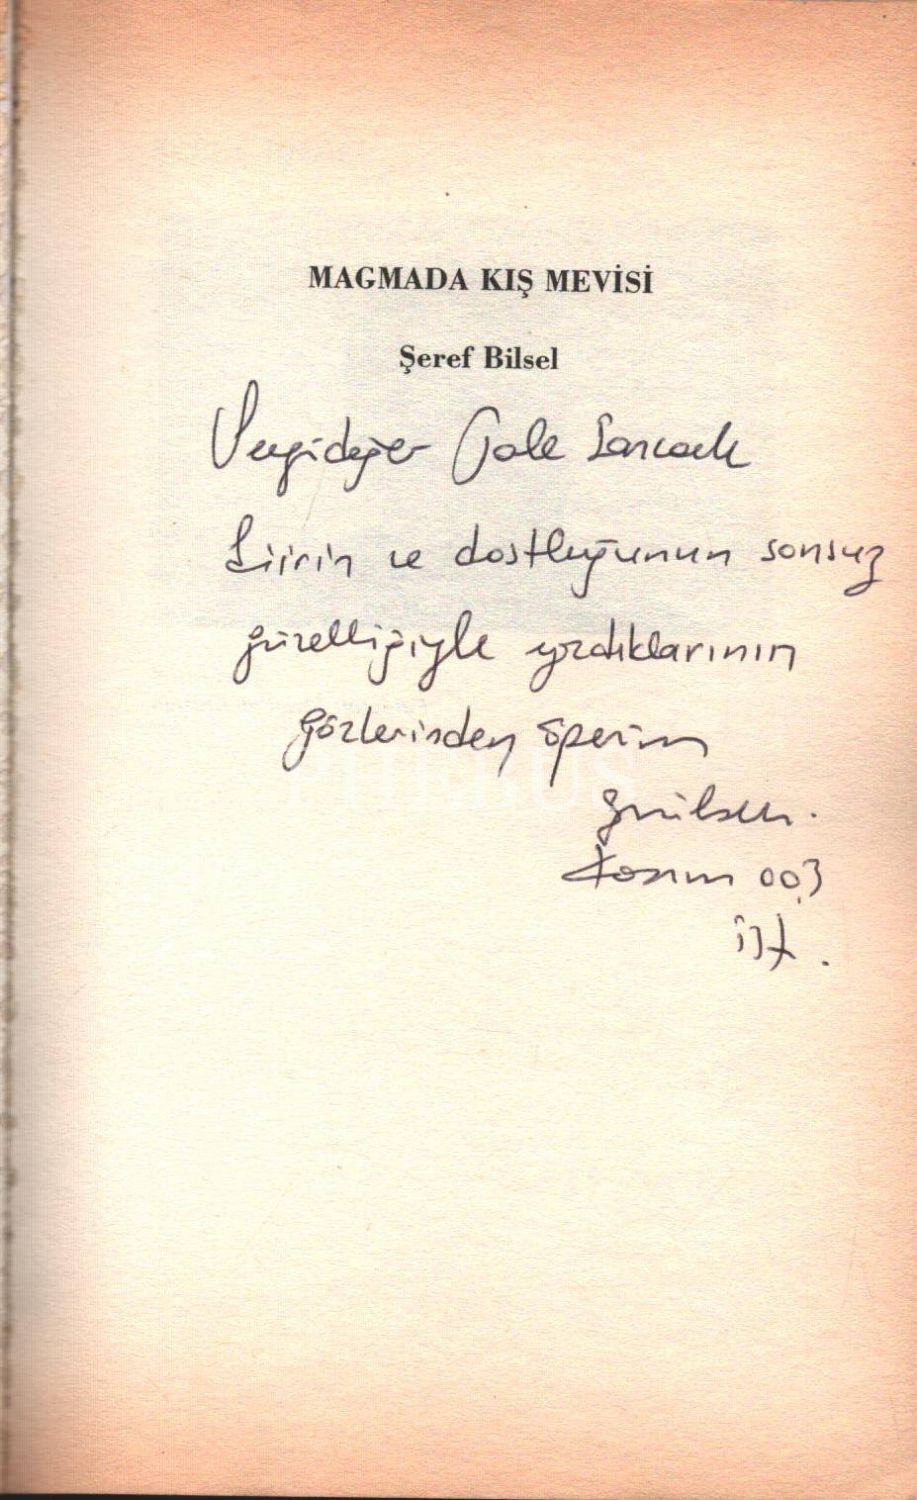 MAGMADA KIŞ MEVİSİ
Şeref Bilsel
Jale Sancak
Şiirin ve dostluğunun sonsuz
güzelliğiyle yazdıklarının
gözlerinden öperim
Kasım 003
ist.
PHEBUS